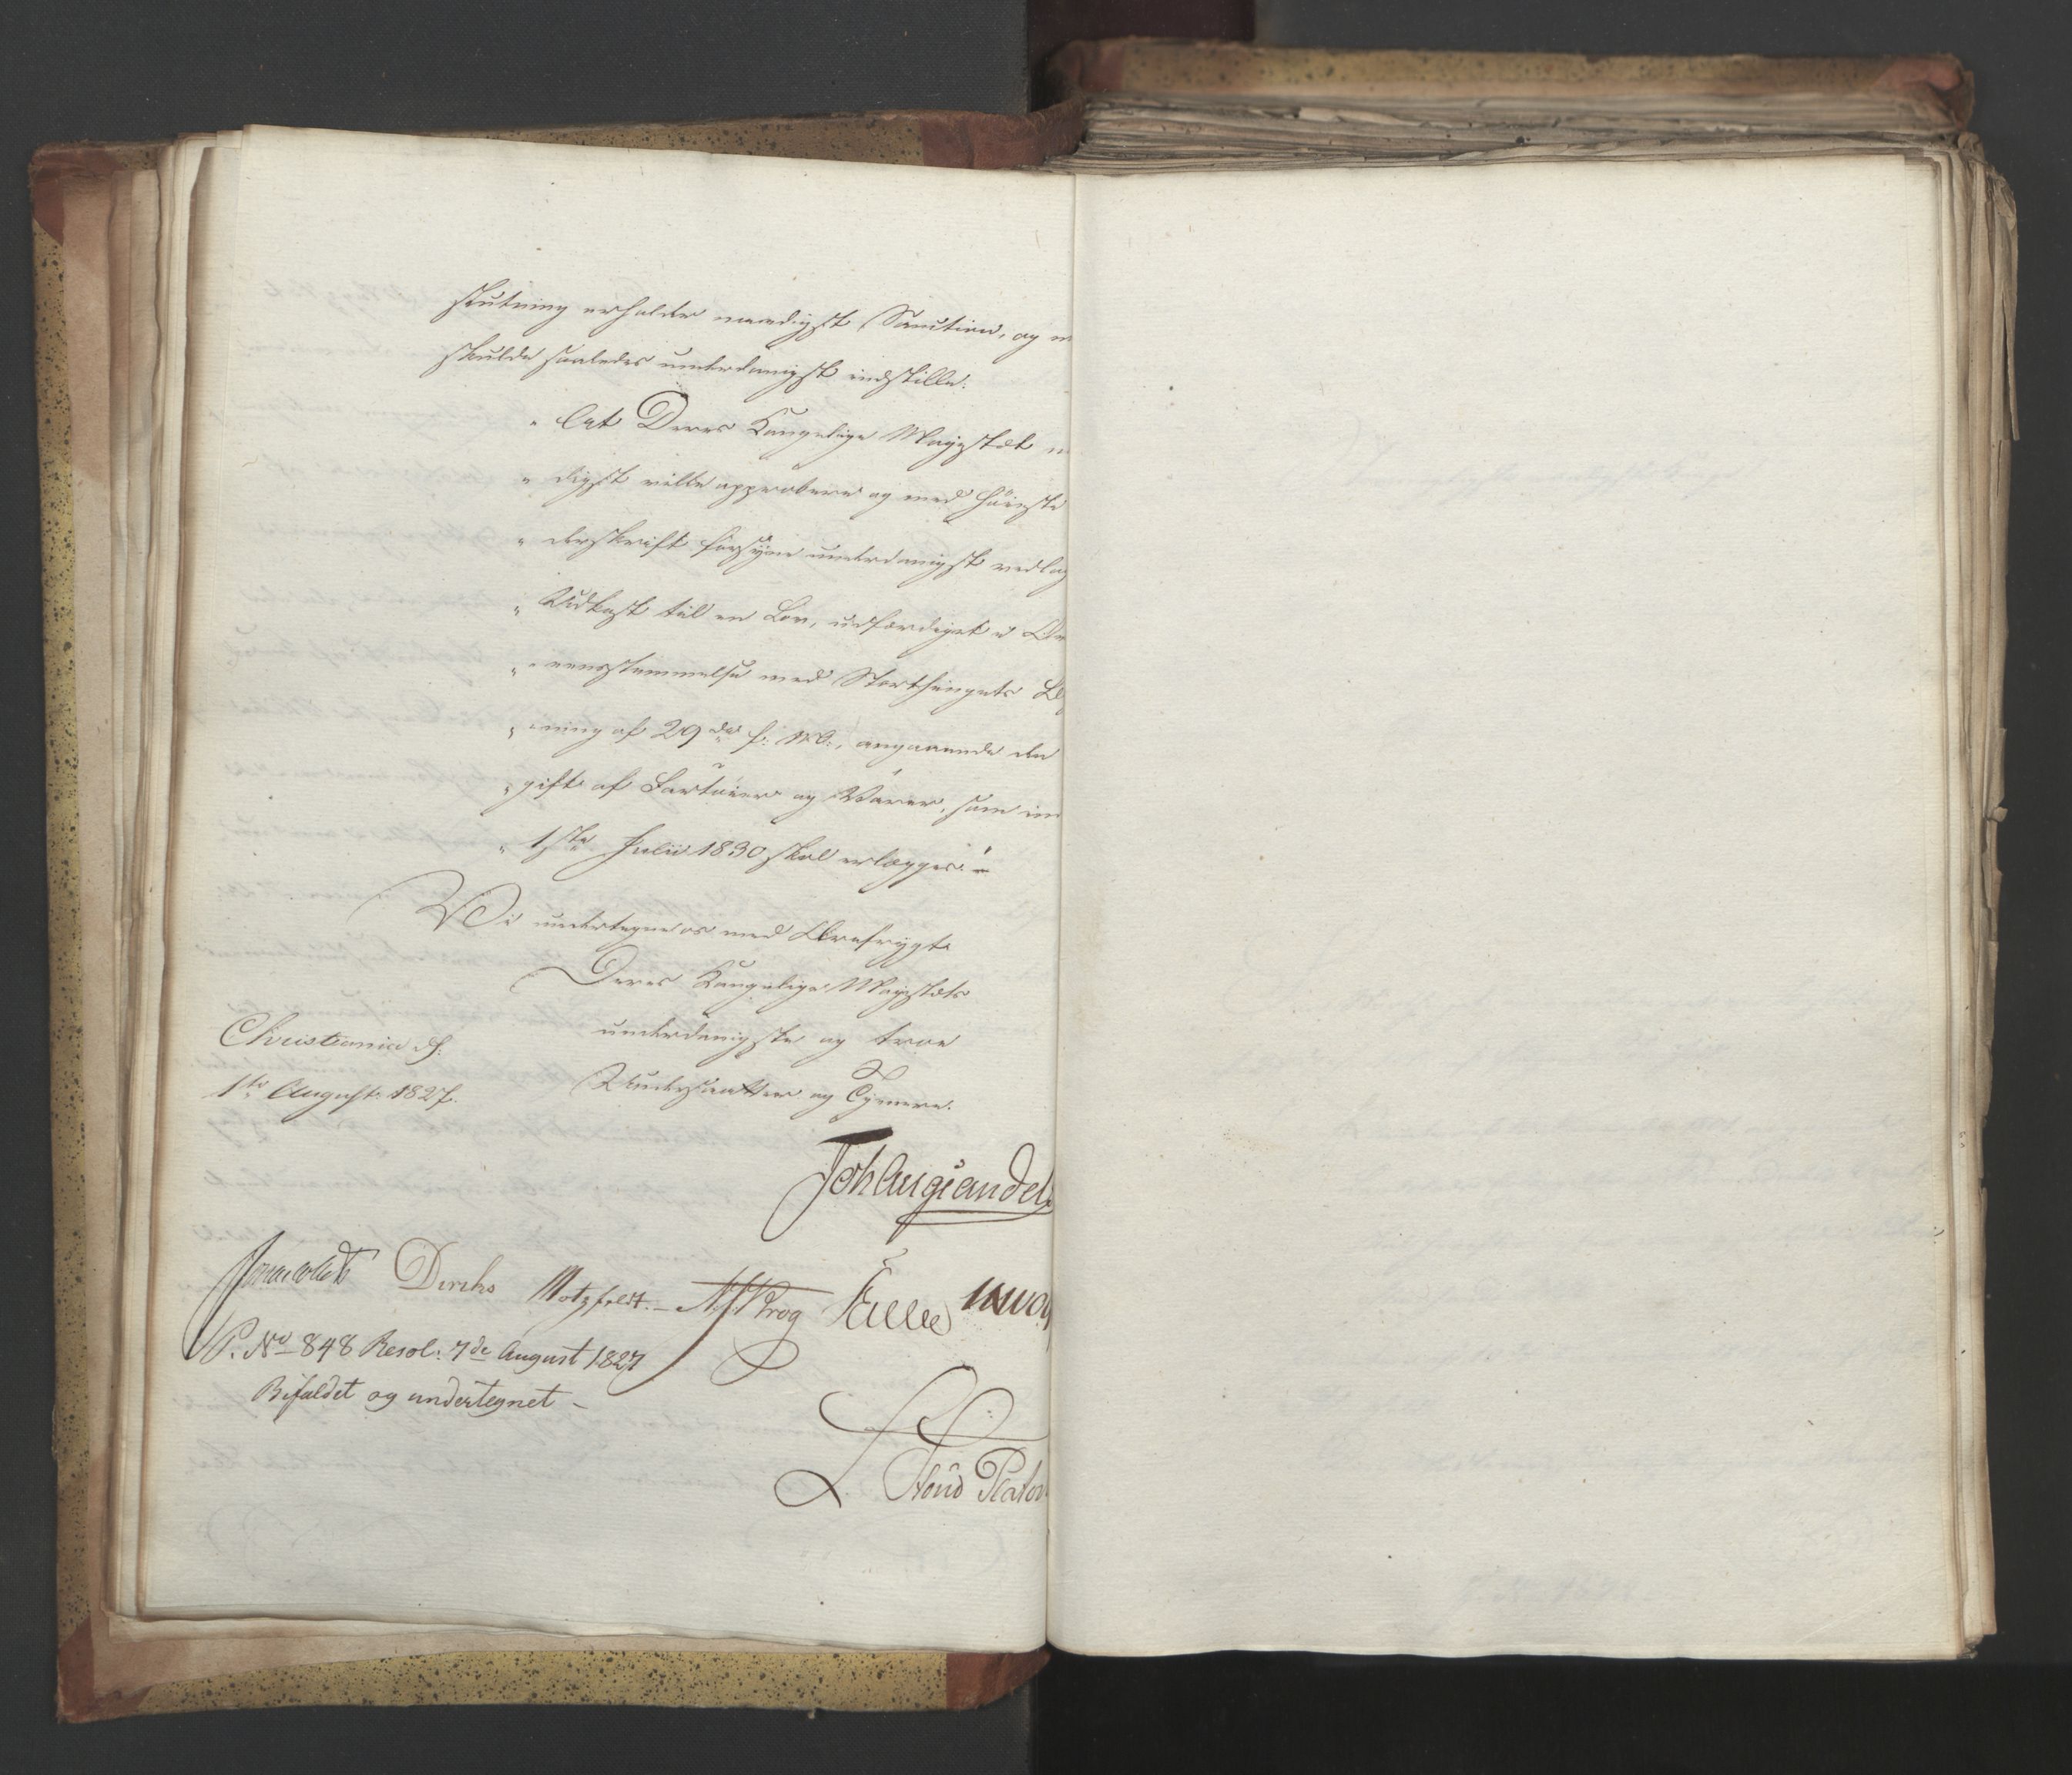 slutning erholder naadigst Sanction, og
skulde saaledes underdanigst indstille:
„ At Deres Kongelige Majestæt
„ digst ville approbere og med Høieste
„ derskrift forsyne underdanigst vedlag
„ Udkast til en Lov, udfærdiget i O
„ eensstemmelse med Storthingets Be
„ ning af 29de f. M., angaaende den
„ gift af Fartøier og Varer, som in
„ 1ste Julii 1830 skal erlægges. „
Vi undertegne os med Ærefrygt
Deres Kongelige Majestæts
underdanigste og troe
Undersaatter og Tjenere.
Christiania d:
1te August 1827.
Joh Aug Sandels
Jonas Collett Diriks Motzfeldt. Krog Fasting
P. No 848 Resol: 7de August 1827
Bifaldet og undertegnet –
Stoud Platou